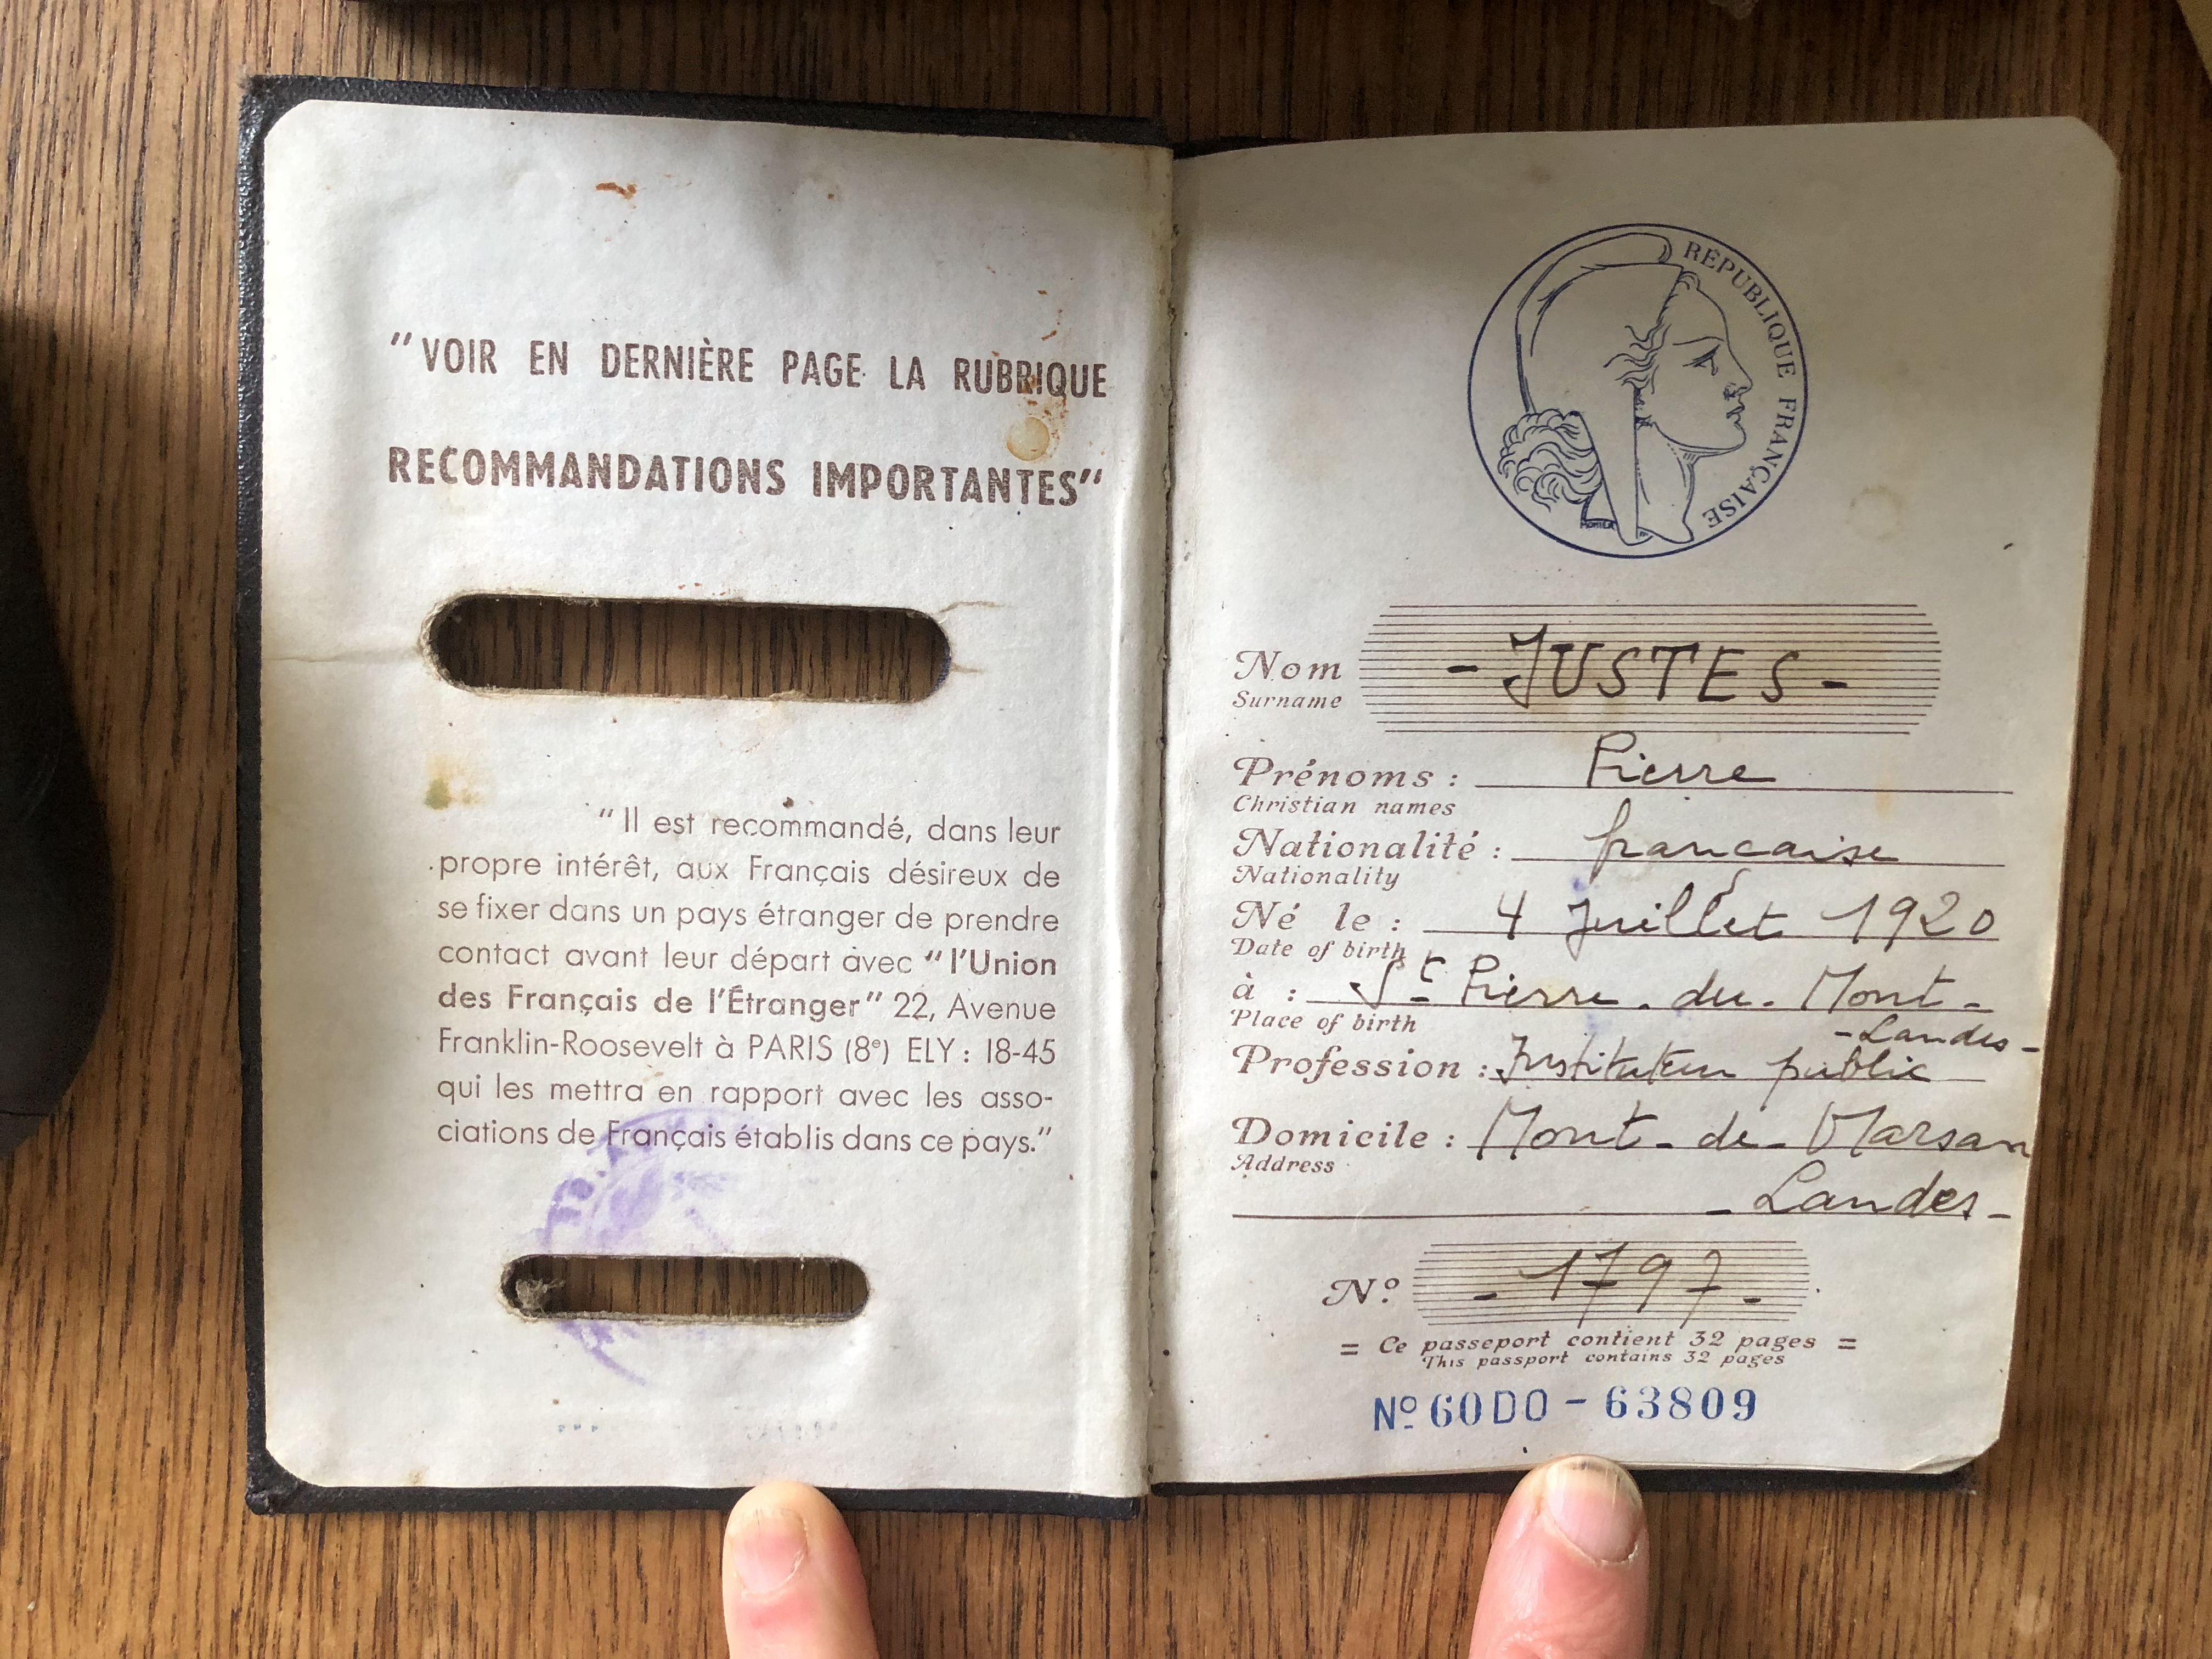 "VOIR EN DERNIÈRE PAGE LA RUBRIQUE
RECOMMANDATIONS IMPORTANTES"
"Il est recommandé, dans leur
propre intérêt, aux Français désireux de
se fixer dans un pays étranger de prendre
contact avant leur départ avec "l'Union
des Français de l'Étranger" 22, Avenue
Franklin-Roosevelt à PARIS (8e) ELY : 18-45
qui les mettra en rapport avec les asso-
ciations de Français établis dans ce pays."
RÉPUBLIQUE FRANÇAISE
Nom - JUSTES -
Surname
Prénoms : Pierre
Christian names
Nationalité : française
Nationality
Né le : 4 Juillet 1920
Date of birth
à : St Pierre - du - Mont -
Place of birth - Landes -
Profession : Instituteur public
Domicile : Mont - de - Marsan
Address
- Landes -
No. - 1797 -
= Ce passeport contient 32 pages =
This passport contains 32 pages
No 60DO - 63809